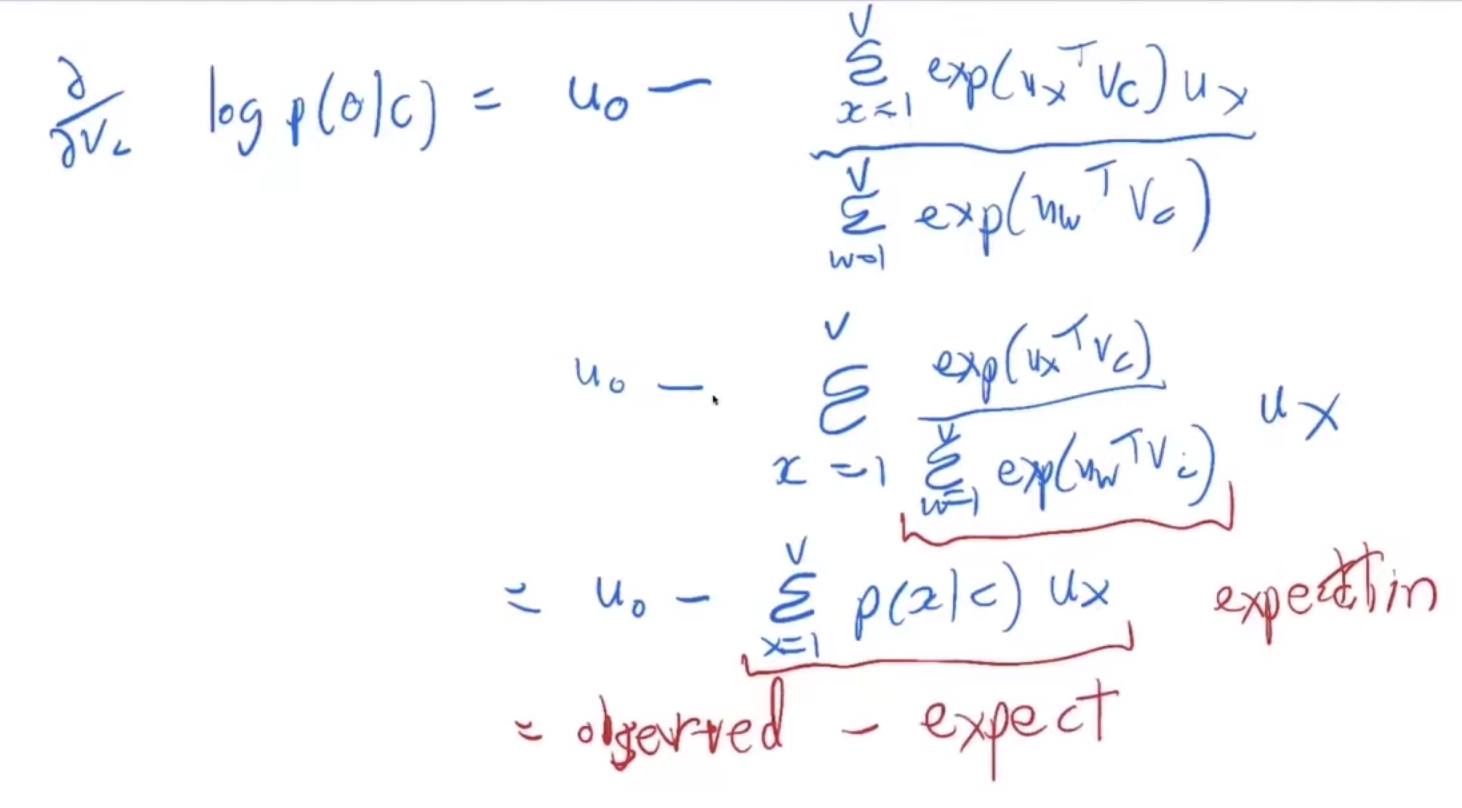 ∂/∂v_c log p(o|c) = u_o − (Σ_{x=1}^{V} exp(u_x^T v_c) u_x) / (Σ_{w=1}^{V} exp(u_w^T v_c))
u_o − Σ_{x=1}^{V} (exp(u_x^T v_c)) / (Σ_{w=1}^{V} exp(u_w^T v_c)) u_x
= u_o − Σ_{x=1}^{V} p(x|c) u_x expectatin
= observed − expect